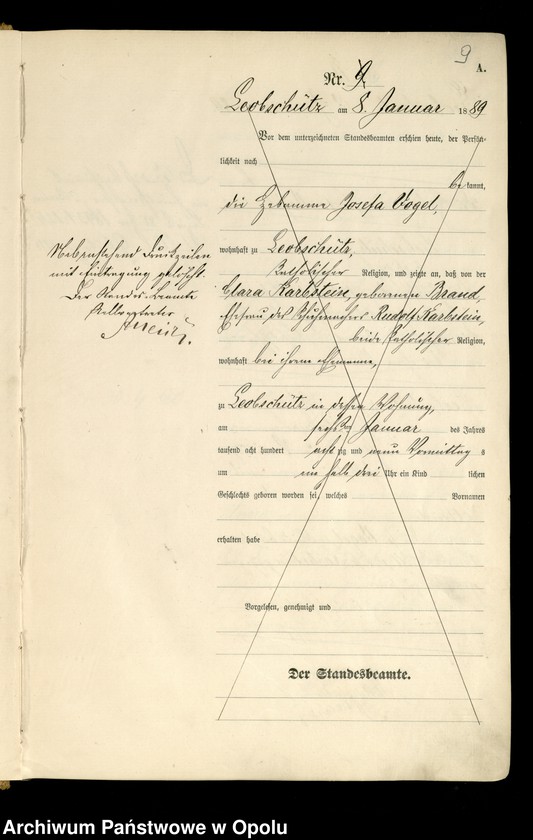 9
A.
Nr. 9
Leobschütz am 8. Januar 1889
Vor dem unterzeichneten Standesbeamten erschien heute, der Persön-
lichkeit nach
be kannt,
die Hebamme Josefa Vogel,
wohnhaft zu Leobschütz,
katholischer Religion, und zeigte an, daß von der
Clara Karbstein, geborenen Brand,
Ehefrau des Schuhmachers Rudolf Karbstein,
beide katholischer Religion,
wohnhaft bei ihrem Ehemanne,
zu Leobschütz in dessen Wohnung,
am sechsten Januar des Jahres
tausend acht hundert achtzig und neun Vormittags
um halb drei Uhr ein Kind lichen
Geschlechts geboren worden sei, welches Vornamen
erhalten habe
Vorgelesen, genehmigt und
Der Standesbeamte.
Nebenstehend Druckzeilen
mit Eintragung gelöscht.
Der Standesbeamte
Archiwum Państwowe w Opolu